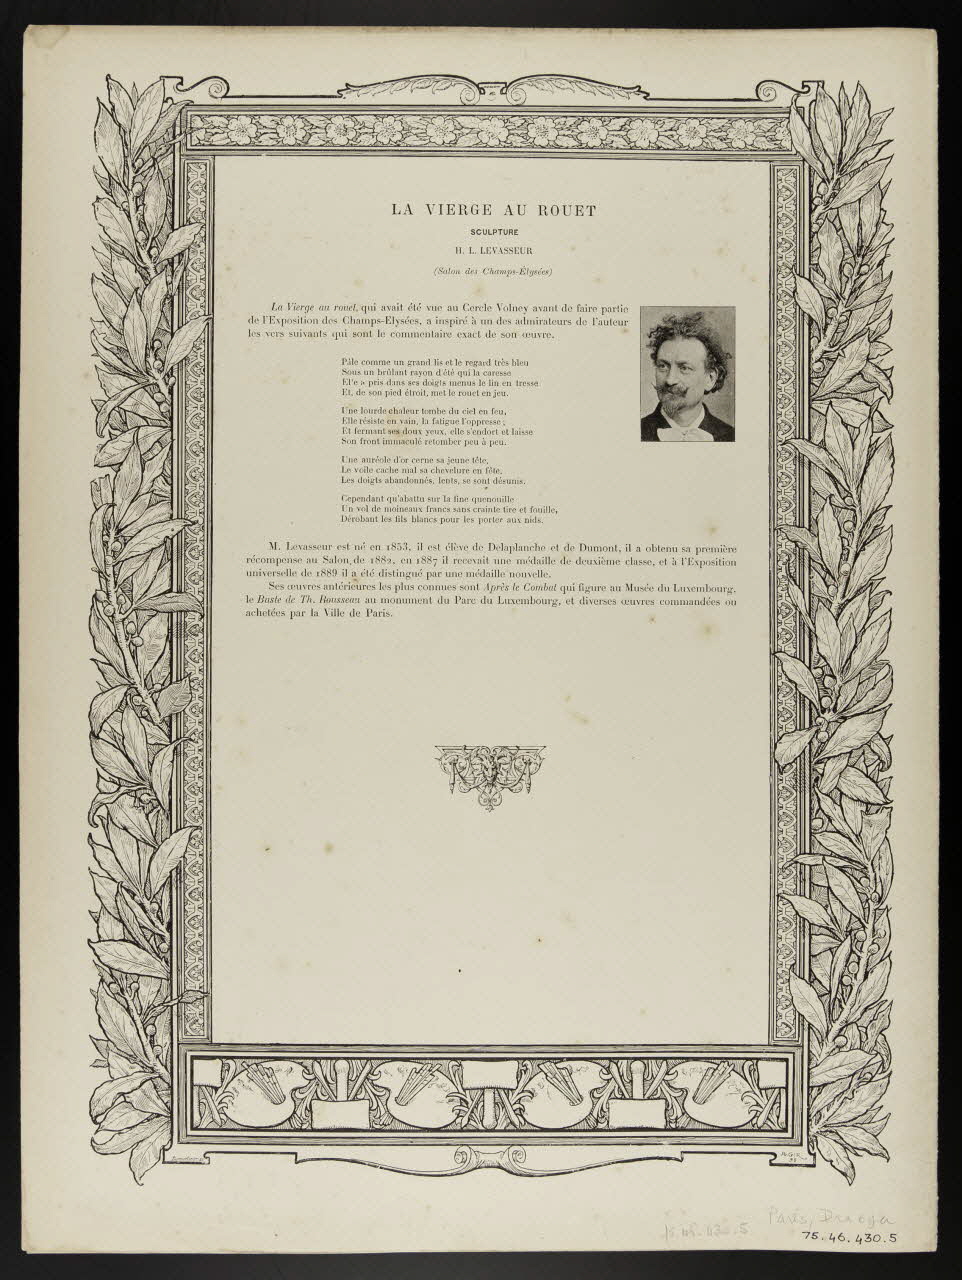 LA VIERGE AU ROUET
SCULPTURE
H. L. LEVASSEUR
(Salon des Champs-Élysées)
La Vierge au rouet, qui avait été vue au Cercle Volney avant de faire partie
de l'Exposition des Champs-Elysées, a inspiré à un des admirateurs de l'auteur
les vers suivants qui sont le commentaire exact de son œuvre.
Pâle comme un grand lis et le regard très bleu
Sous un brûlant rayon d'été qui la caresse
Elle a pris dans ses doigts menus le lin en tresse
Et, de son pied étroit, met le rouet en jeu.
Une lourde chaleur tombe du ciel en feu,
Elle résiste en vain, la fatigue l'oppresse ;
Et fermant ses doux yeux, elle s'endort et laisse
Son front immaculé retomber peu à peu.
Une auréole d'or cerne sa jeune tête,
Le voile cache mal sa chevelure en fête,
Les doigts abandonnés, lents, se sont désunis.
Cependant qu'abattu sur la fine quenouille
Un vol de moineaux francs sans crainte tire et fouille,
Dérobant les fils blancs pour les porter aux nids.
M. Levasseur est né en 1853, il est élève de Delaplanche et de Dumont, il a obtenu sa première
récompense au Salon de 1882, en 1887 il recevait une médaille de deuxième classe, et à l'Exposition
universelle de 1889 il a été distingué par une médaille nouvelle.
Ses œuvres antérieures les plus connues sont Après le Combat qui figure au Musée du Luxembourg,
le Buste de Th. Rousseau au monument du Parc du Luxembourg, et diverses œuvres commandées ou
achetées par la Ville de Paris.
Paris, Draeger
75.46.430.5
75.46.430.5